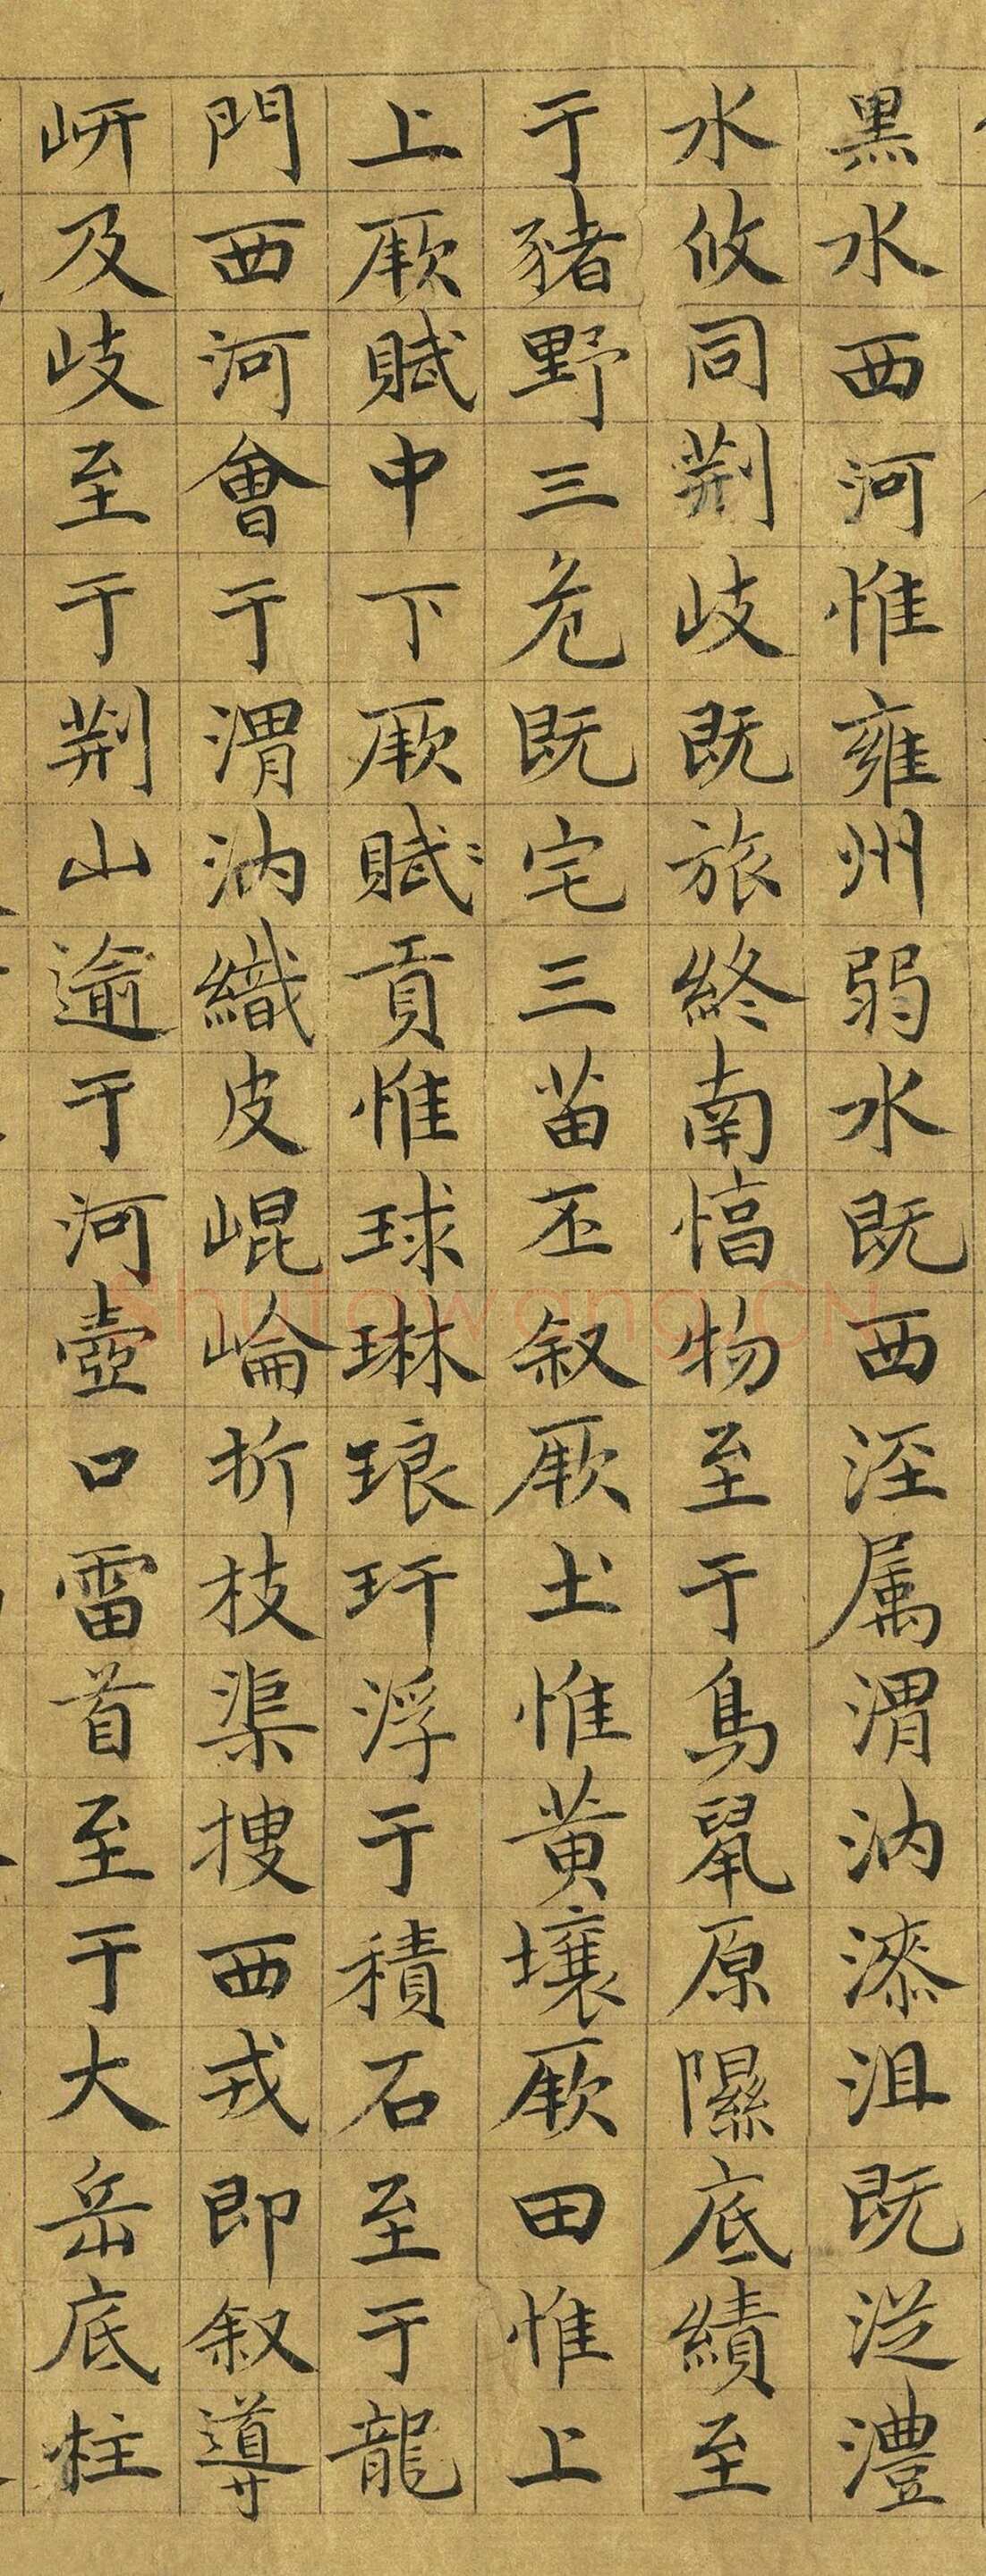 黒水西河惟雍州弱水既西涇属渭汭漆沮既從灃
水攸同荆岐既旅終南惇物至于鳥鼠原隰底績至
于豬野三危既宅三苗丕叙厥土惟黄壤厥田惟上
上厥賦中下厥賦貢惟球琳琅玕浮于積石至于龍
門西河會于渭汭織皮崐崘析枝渠搜西戎即叙導
岍及岐至于荆山逾于河壺口雷首至于大岳底柱
Shufawang.CN